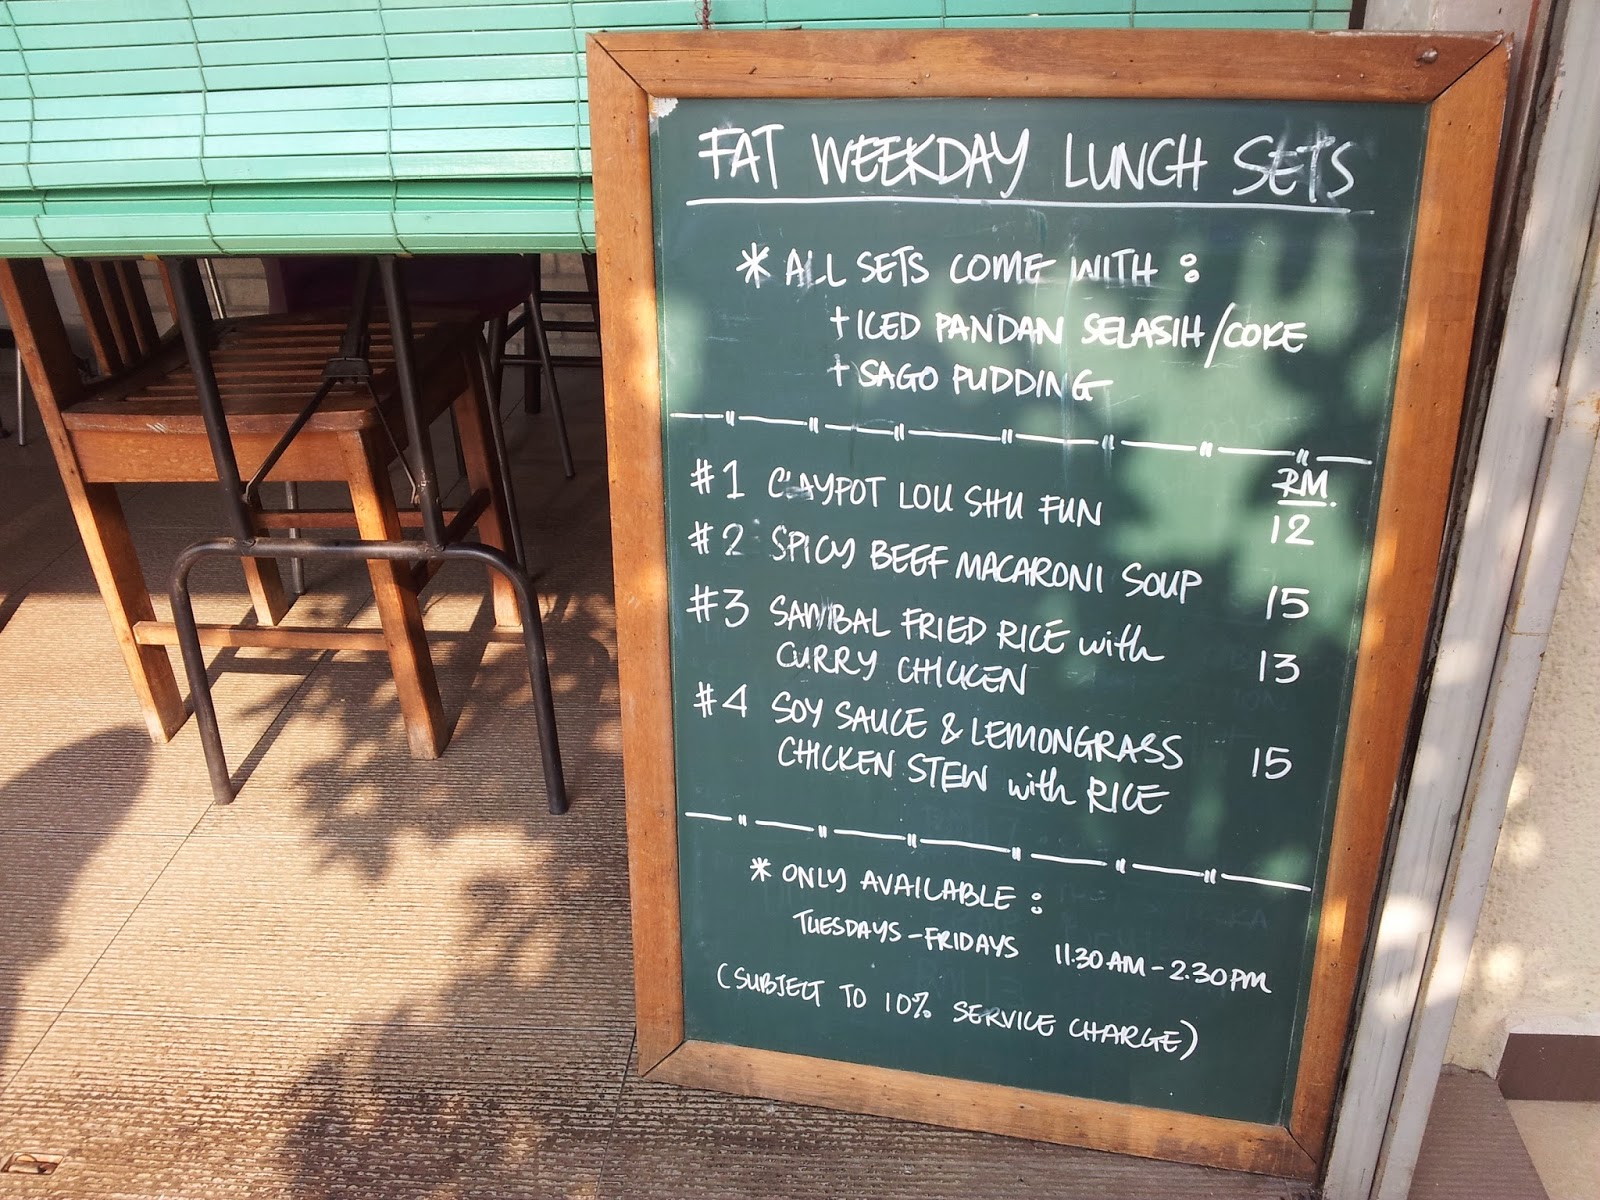 FAT WEEKDAY LUNCH SETS
* ALL SETS COME WITH :
+ ICED PANDAN SELASIH/COKE
+ SAGO PUDDING
RM.
#1 CLAYPOT LOU SHU FUN 12
#2 SPICY BEEF MACARONI SOUP 15
#3 SAMBAL FRIED RICE with
CURRY CHICKEN 13
#4 SOY SAUCE & LEMONGRASS
CHICKEN STEW with RICE 15
* ONLY AVAILABLE :
TUESDAYS - FRIDAYS 11.30AM - 2.30PM
(SUBJECT TO 10% SERVICE CHARGE)